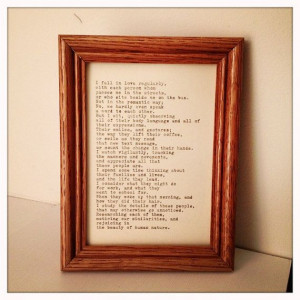 I fall in love regularly,
with each person whom
passes me in the streets,
or who sits beside me on the bus.
Not in the romantic way;
No, we hardly ever speak
a word to each other.
But I sit, quietly observing
all of their body language and all of
their expressions.
Their smiles, and gestures;
the way they lift their coffee,
or smile as they read
that new text message,
or count the change in their hands.
I watch vigilantly, touching
the manners and movements,
and appreciate all that
these people are.
I spend some time thinking about
their families and lives,
and the life they lead.
I consider what they might do
for work, and what they
went to school for.
When they woke up that morning, and
how they did their hair.
I study the details of these people,
that may otherwise go unnoticed.
Researching each of them,
noticing our similarities, and
rejoicing in
the beauty of human nature.